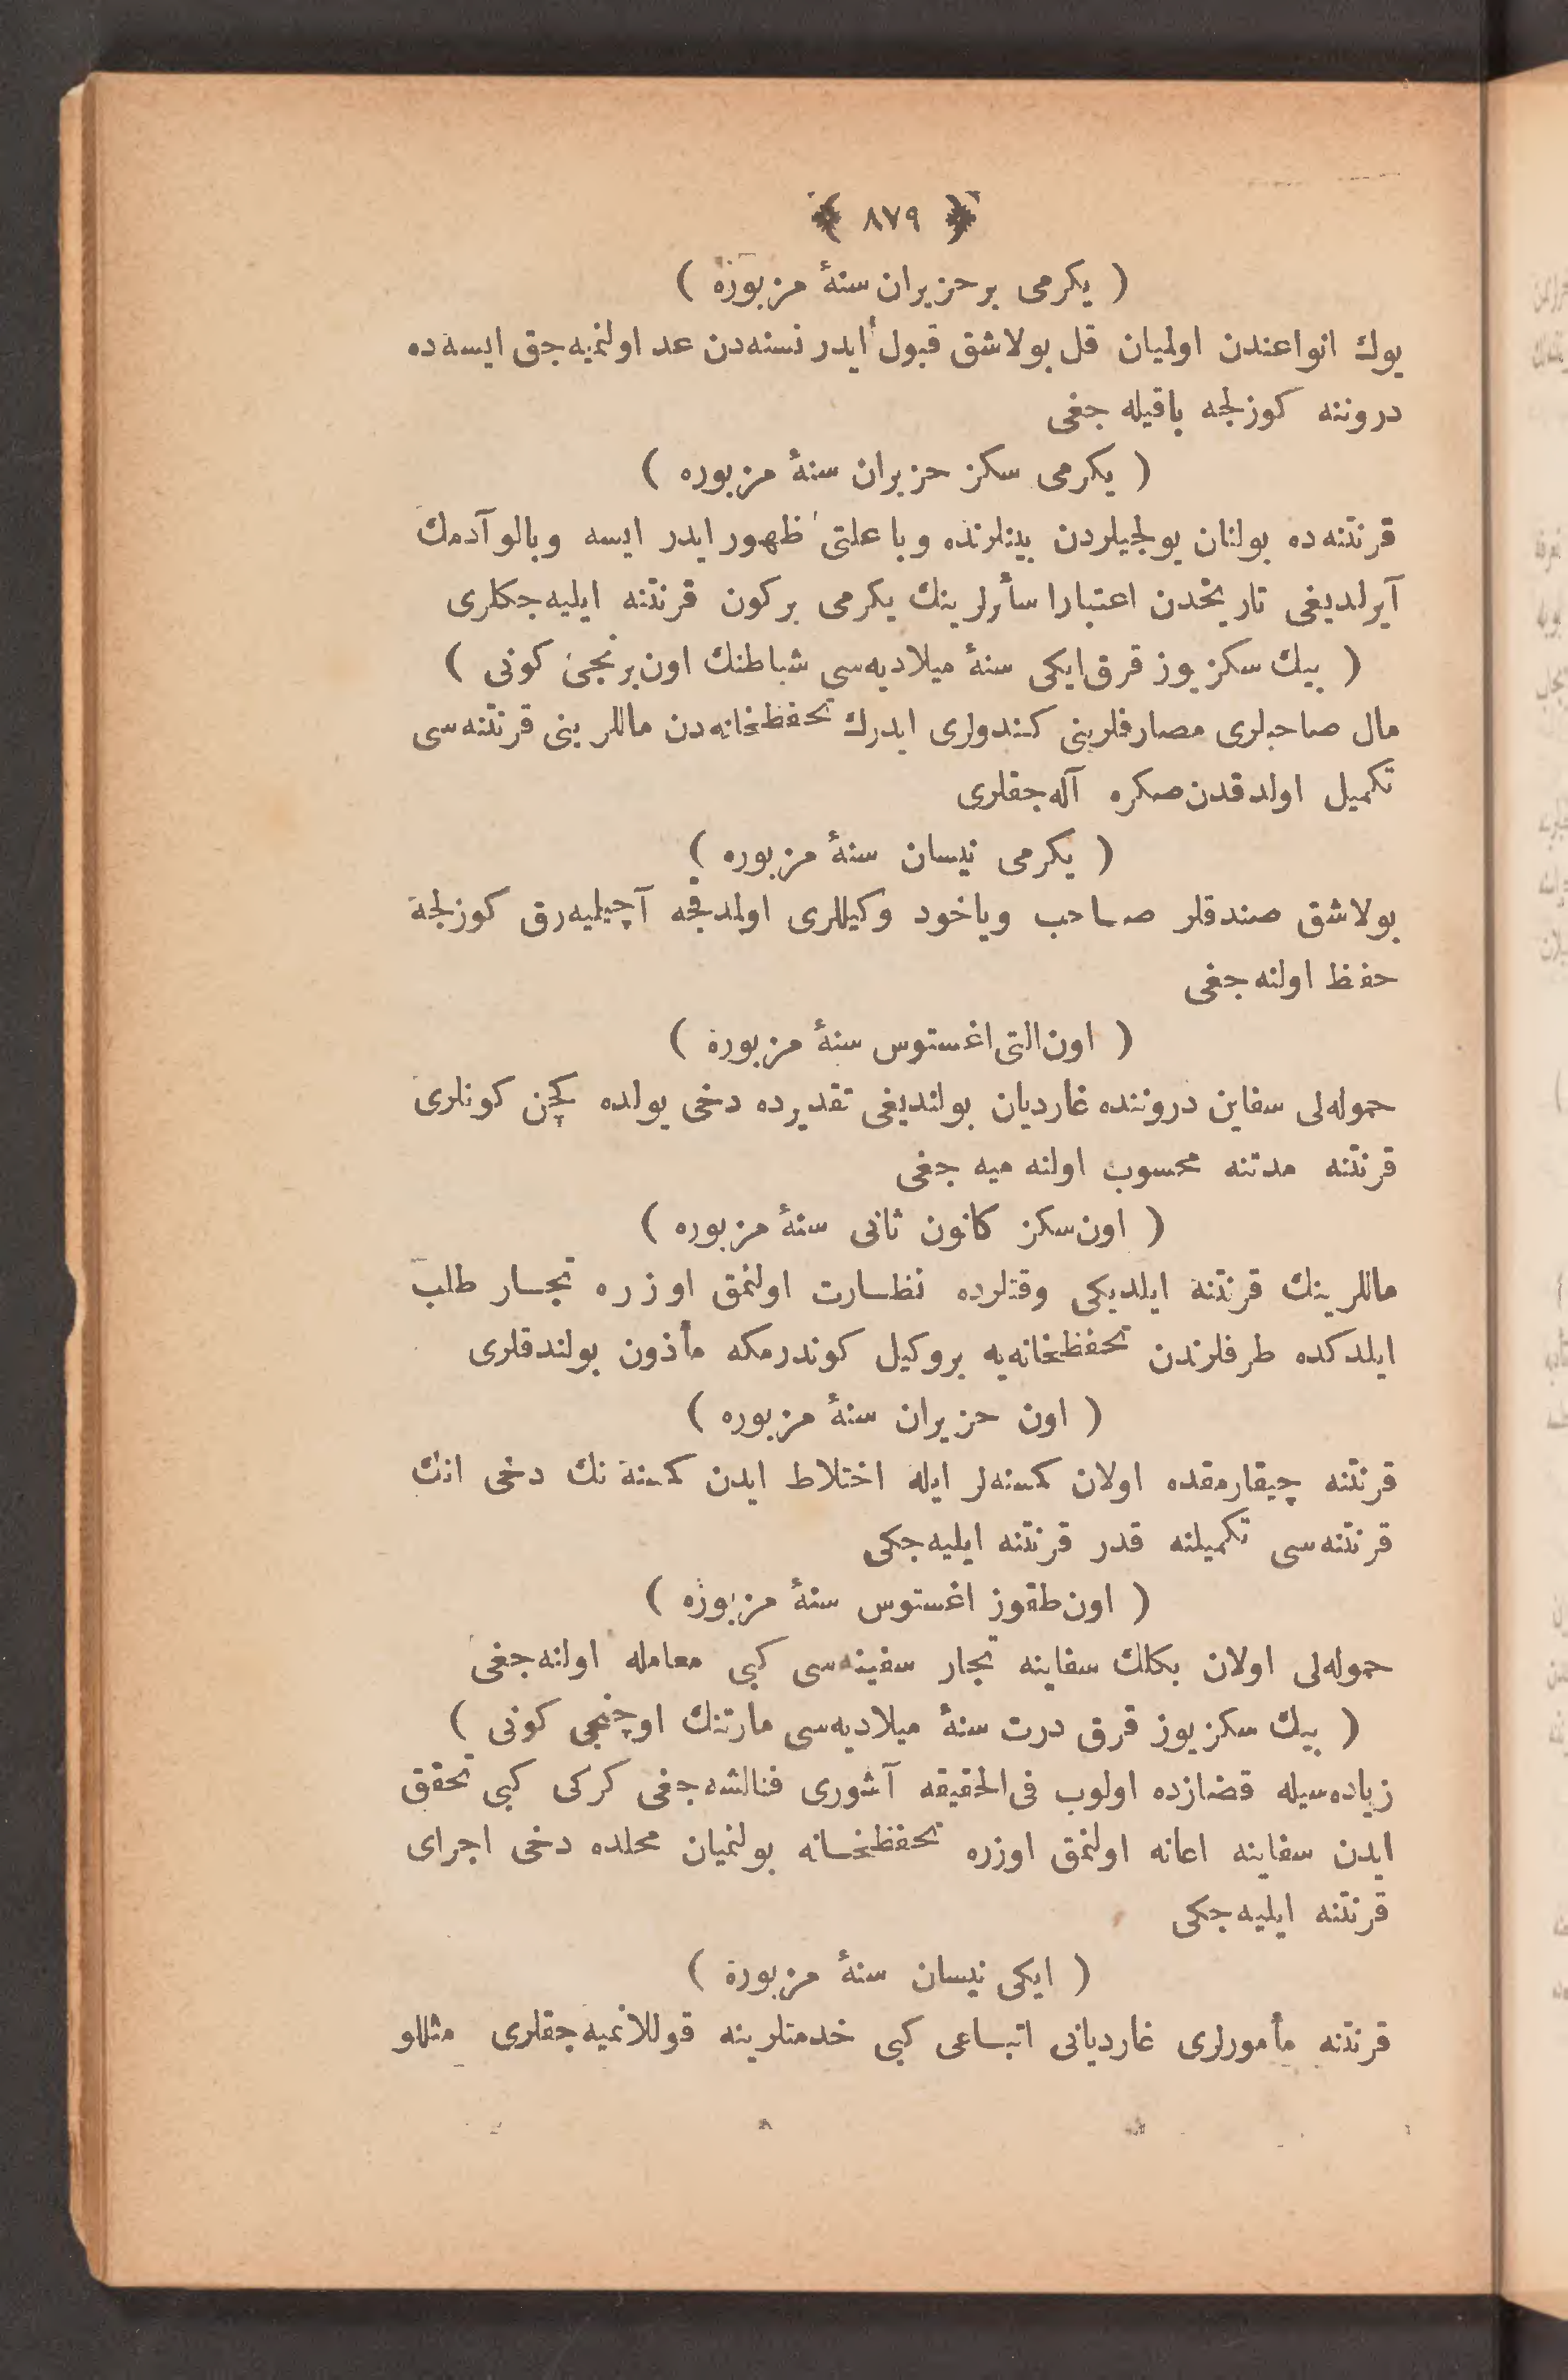 ﴿ ٨٧٩ ﴾
( یكرمی بر حزیران سنهٔ مزبوره )
یوك انواعندن اولمیان قل بولاشق قبول ایدر نسنه‌دن عد اولنمیه‌جق ایسه‌ده
دروننه كوزلجه باقیله جغی
( یكرمی سكز حزیران سنهٔ مزبوره )
قرنتنه‌ده بولنان یولجیلردن بینلرنده وبا علتی ظهور ایدر ایسه وبالو آدمك
آیرلدیغی تاریخدن اعتبارا سأرلرینك یكرمی بر كون قرنتنه ایلیه‌جكلری
( بیك سكزیوز قرق ایكی سنهٔ میلادیه‌سی شباطنك اون برنجی كونی )
مال صاحبلری مصارفلرینی كندولری ایدرك تحفظخانه‌دن ماللرینی قرنتنه‌سی
تكمیل اولدقدن صكره آله‌جقلری
( یكرمی نیسان سنهٔ مزبوره )
بولاشق صندقلر صاحب ویاخود وكیللری اولمدقجه آچیلمیه‌رق كوزلجه
حفظ اولنه‌جغی
( اون التی اغستوس سنهٔ مزبوره )
حموله‌لی سفاین دروننده غاردیان بولندیغی تقدیرده دخی یولده كچن كونلری
قرنتنه مدتنه محسوب اولنه میه جغی
( اون سكز كانون ثانی سنهٔ مزبوره )
ماللرینك قرنتنه ایلدیكی وقتلرده نظارت اولنمق اوزره تجار طلب
ایلدكده طرفلرندن تحفظخانه‌یه بر وكیل كوندرمكه مأذون بولندقلری
( اون حزیران سنهٔ مزبوره )
قرنتنه چیقارمقده اولان كمسنه‌لر ایله اختلاط ایدن كمسنه نك دخی انك
قرنتنه‌سی تكمیلنه قدر قرنتنه ایلیه‌جكی
( اون طقوز اغستوس سنهٔ مزبوره )
حموله‌لی اولان بكلك سفاینه تجار سفینه‌سی كبی معامله اولنه‌جغی
( بیك سكزیوز قرق درت سنهٔ میلادیه‌سی مارتنك اوچنجی كونی )
زیاده‌سیله قضازده اولوب فی‌الحقیقه آشوری فنالشه‌جغی كركی كبی تحقق
ایدن سفاینه اعانه اولنمق اوزره تحفظخانه بولنمیان محلده دخی اجرای
قرنتنه ایلیه‌جكی
( ایكی نیسان سنهٔ مزبوره )
قرنتنه مأمورلری غاردیانی اتباعی كبی خدمتلرینه قوللانمیه‌جقلری مثللو